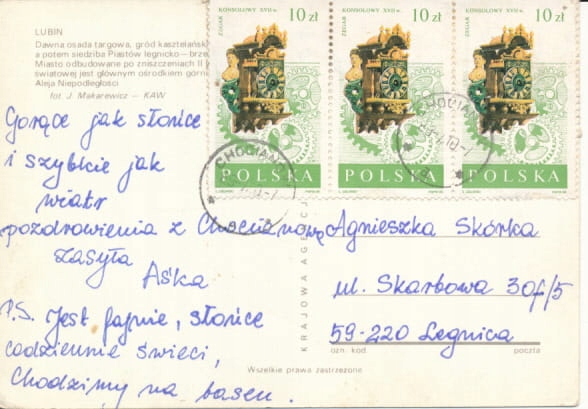 LUBIN
Dawna osada targowa, gród kasztelańsk
a potem siedziba Piastów legnicko — brze
Miasto odbudowane po zniszczeniach II
światowej jest głównym ośrodkiem górni
Aleja Niepodległości
fot. J. Makarewicz — KAW
ZEGAR KONSOLOWY XVII w. 10 zł
POLSKA
ZEGAR KONSOLOWY XVII w. 10 zł
POLSKA
ZEGAR KONSOLOWY XVII w. 10 zł
POLSKA
CHOCIAN
CHOCIAN
Gorące jak słońce
i szybkie jak
wiatr
pozdrowienia z Chocianowa
zasyła
Aśka
P.S. Jest fajnie, słońce
codziennie świeci,
Chodzimy na basen.
KRAJOWA AGENC
Agnieszka Skórka
ul. Skarbowa 30f/5
59-220 Legnica
ozn. kod. poczta
Wszelkie prawa zastrzeżone